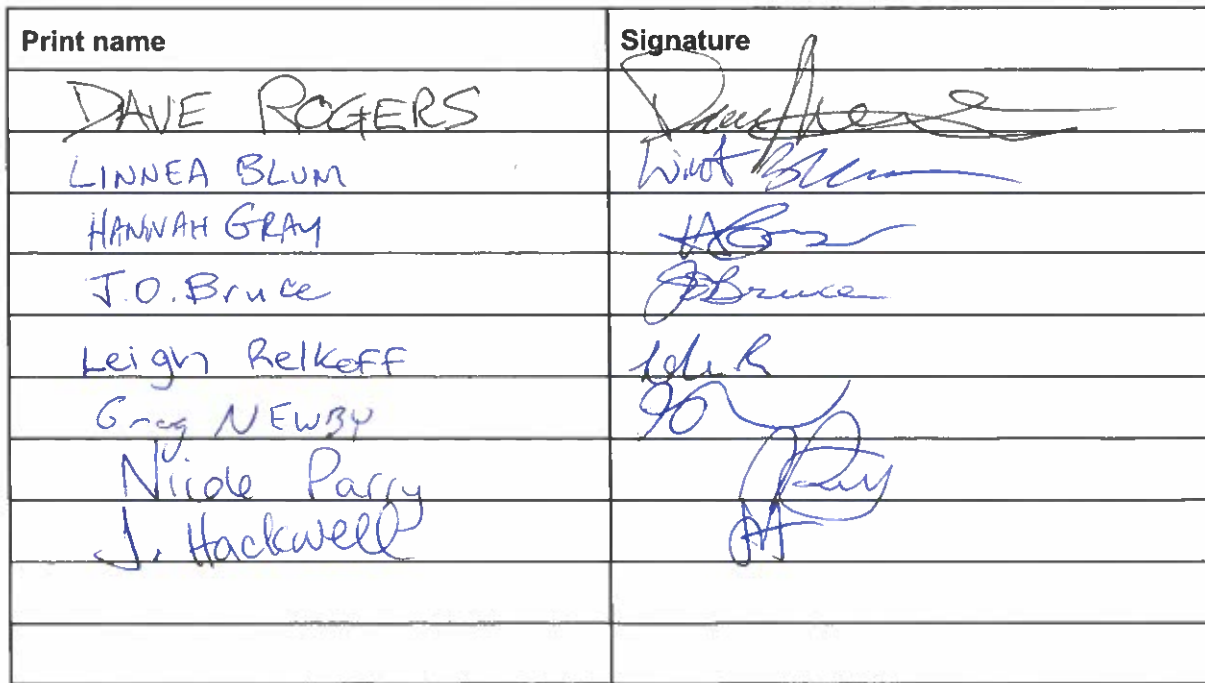 Print name Signature
DAVE ROGERS
LINNEA BLUM
HANNAH GRAY
J.O. Bruce JOBruce
Leigh Relkoff
Greg NEWBY
Nicole Parry
J. Hackwell